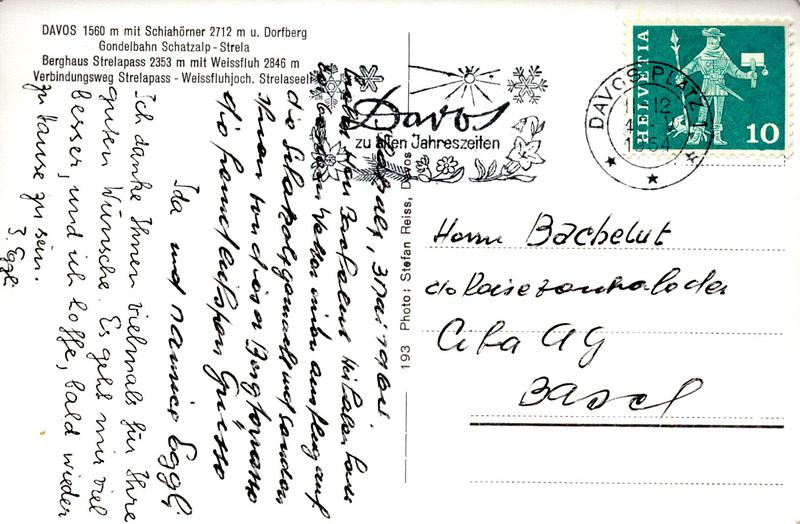 DAVOS 1560 m mit Schiahörner 2712 m u. Dorfberg
Gondelbahn Schatzalp - Strela
Berghaus Strelapass 2353 m mit Weissfluh 2846 m
Verbindungsweg Strelapass - Weissfluhjoch. Strelaseeli
Davos
zu allen Jahreszeiten
DAVOS PLATZ 1
12
1964
HELVETIA
10
193 Photo: Stefan Reiss, Davos
Herrn Bachelut
c/o Reisezentrale der
Ciba AG
Basel
die Schatzalp gemacht und senden
Ihnen von dieser Bergterrasse
die freundlichsten Grüsse
Ida und Eggli
Ich danke Ihnen vielmals für Ihre
guten Wünsche. Es geht mir viel
besser, und ich hoffe, bald wieder
zu Hause zu sein.
J. Eggli